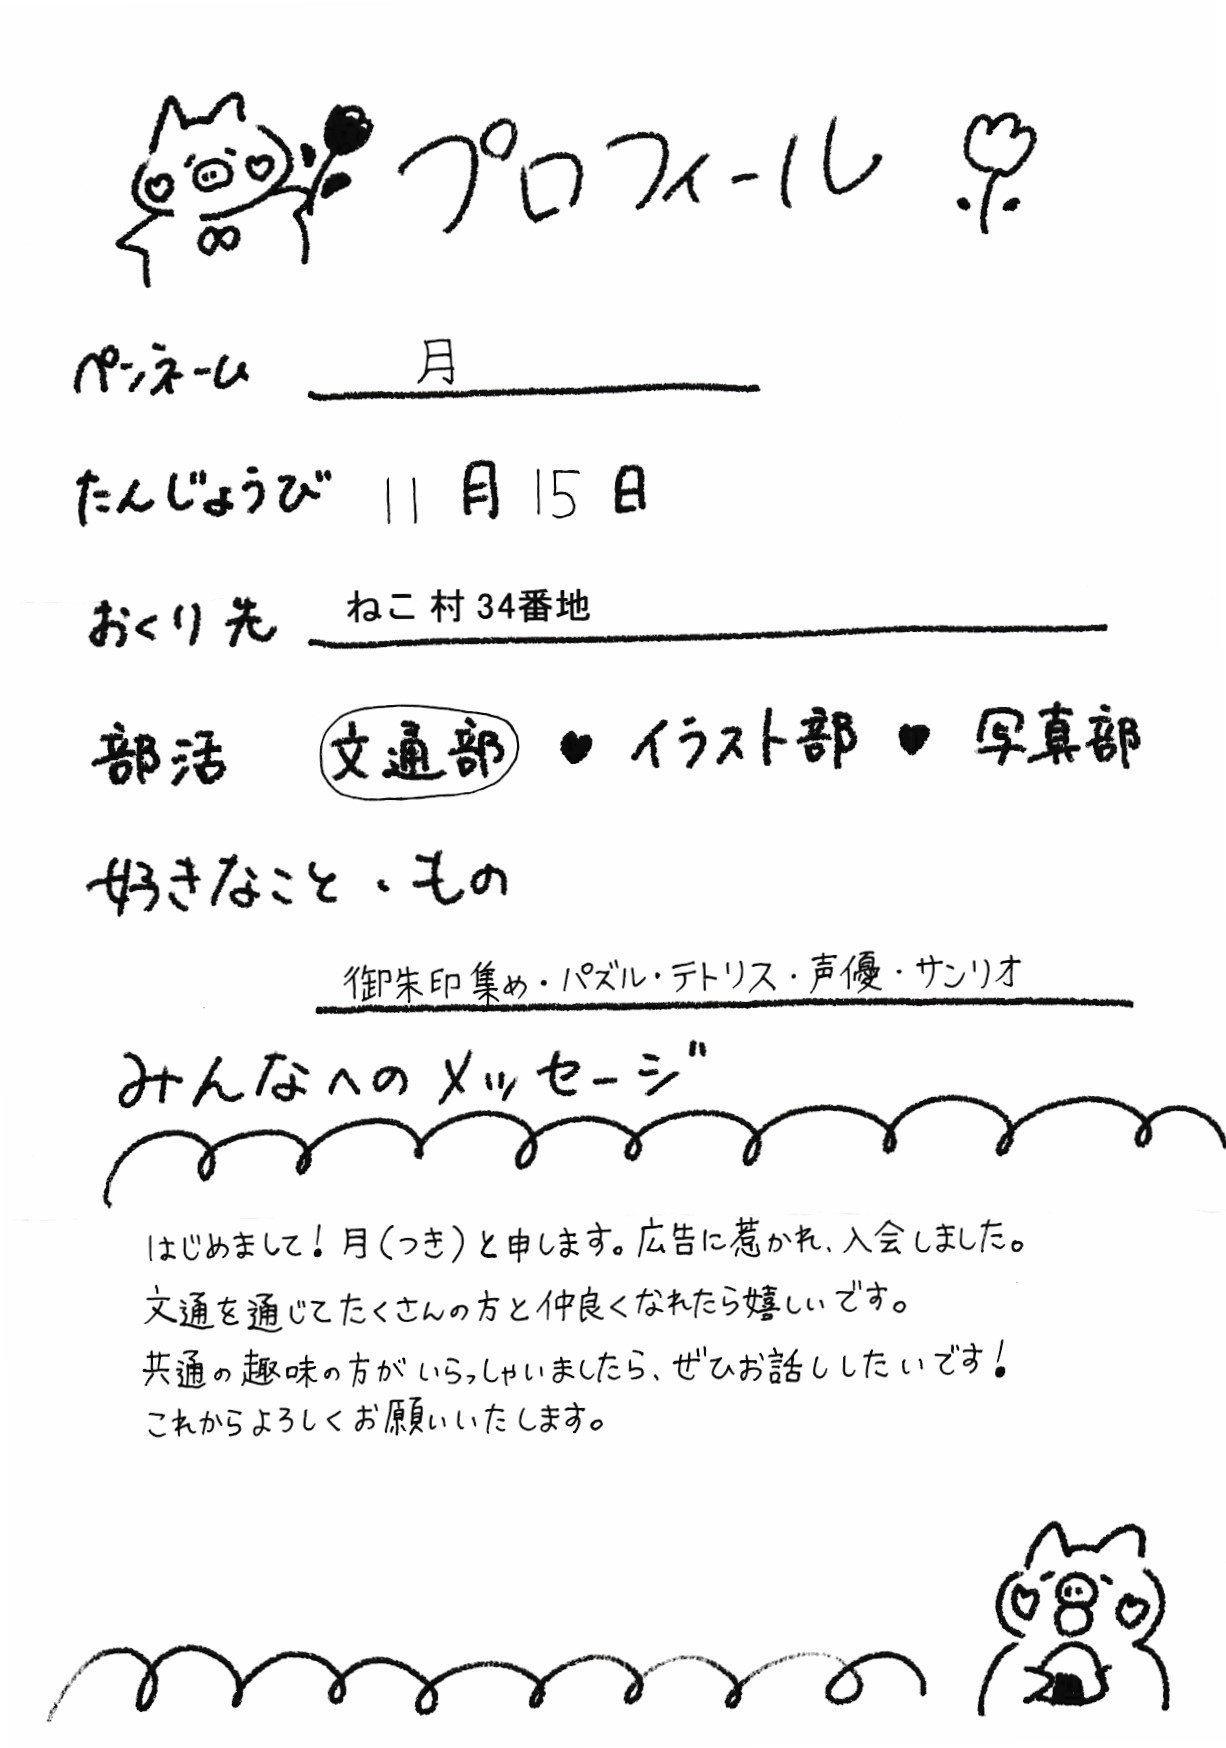 プロフィール
ペンネーム 月
たんじょうび 11月15日
おくり先 ねこ村34番地
部活 文通部 ♥ イラスト部 ♥ 写真部
好きなこと、もの
御朱印集め・パズル・テトリス・声優・サンリオ
みんなへのメッセージ
はじめまして!月(つき)と申します。広告に惹かれ、入会しました。
文通を通じてたくさんの方と仲良くなれたら嬉しいです。
共通の趣味の方がいらっしゃいましたら、ぜひお話ししたいです!
これからよろしくお願いいたします。